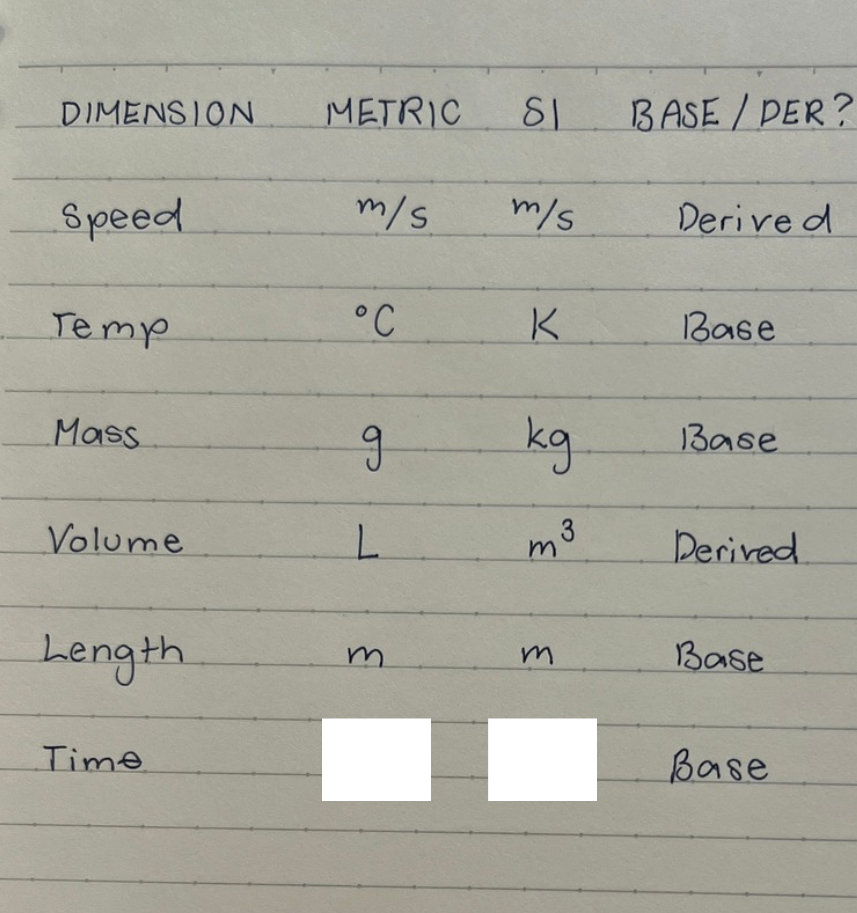 DIMENSION METRIC SI BASE/DER?
Speed m/s m/s Derived
Temp °C K Base
Mass g kg Base
Volume L m³ Derived
Length m m Base
Time Base